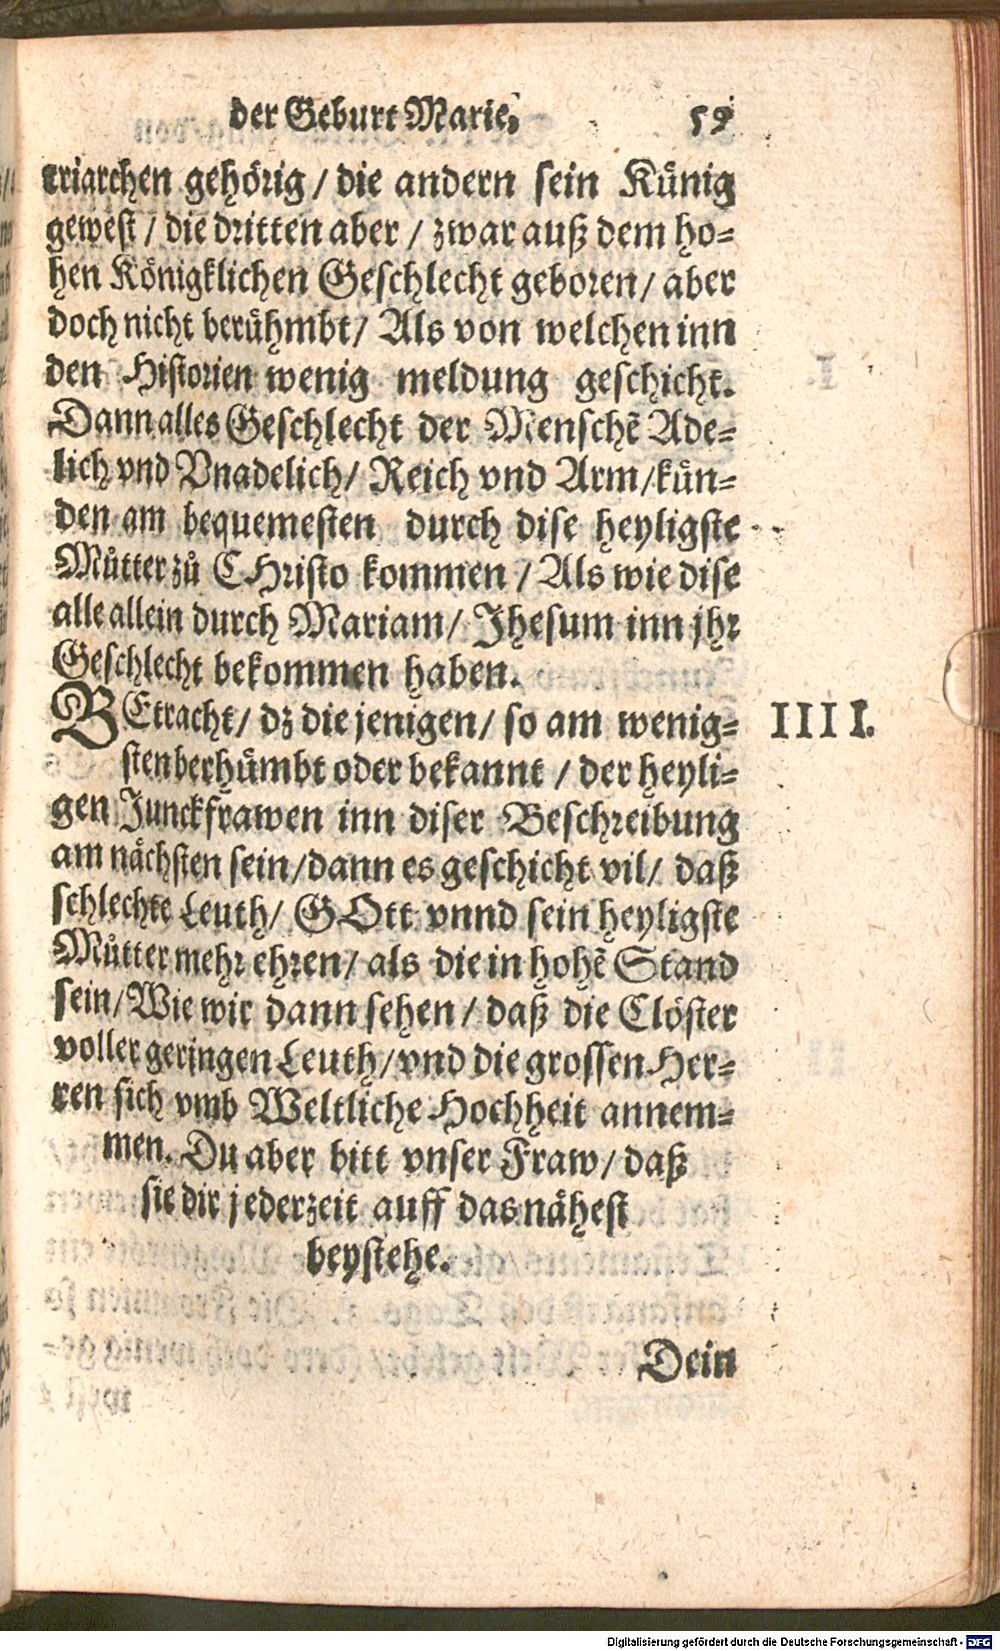 der Geburt Marie, 59
triarchen gehörig / die andern sein Künig
gewest / die dritten aber / zwar auß dem ho=
hen Königklichen Geschlecht geboren / aber
doch nicht berühmbt / Als von welchen inn
den Historien wenig meldung geschicht.
Dann alles Geschlecht der Menschẽ Ade=
lich vnd Vnadelich / Reich vnd Arm / kün=
den am bequemesten durch dise heyligste
Můtter zů CHristo kommen / Als wie dise
alle allein durch Mariam / Jhesum inn jhr
Geschlecht bekommen haben.
BEtracht / dz die jenigen / so am wenig= IIII.
sten berhümbt oder bekannt / der heyli=
gen Junckfrawen inn diser Beschreibung
am nächsten sein / dann es geschicht vil / daß
schlechte Leuth / GOtt vnnd sein heyligste
Můtter mehr ehren / als die in hohẽ Stand
sein / Wie wir dann sehen / daß die Clöster
voller geringen Leuth / vnd die grossen Her=
ren sich vmb Weltliche Hochheit annem=
men. Du aber bitt vnser Fraw / daß
sie dir jederzeit auff das nähest
beystehe.
Dein
Digitalisierung gefördert durch die Deutsche Forschungsgemeinschaft - DFG